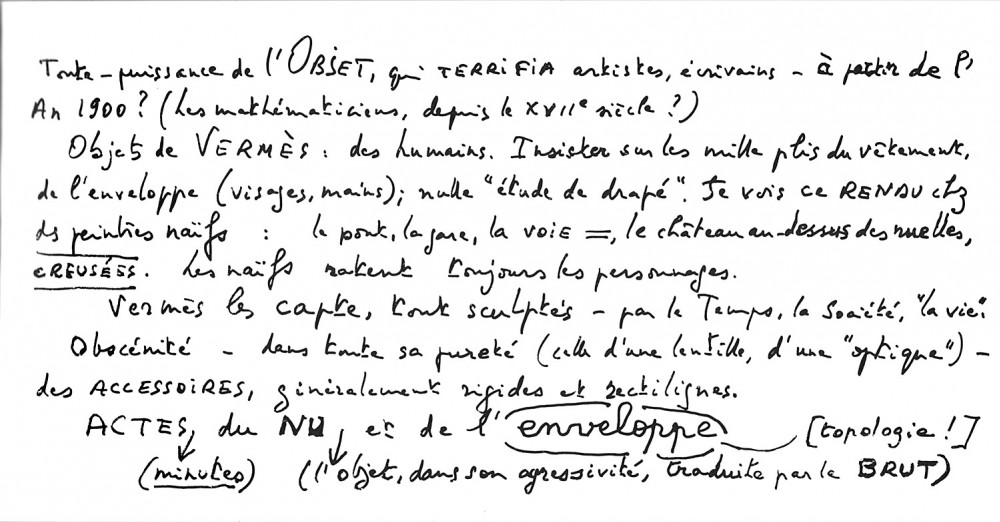 Toute-puissance de l'OBJET, qui TERRIFIA artistes, écrivains - à partir de l'
An 1900 ? (Les mathématiciens, depuis le XVIIe siècle ?)
Objets de VERMÈS : des humains. Insister sur les mille plis du vêtement,
de l'enveloppe (visages, mains) ; nulle "étude de drapé". Je vois ce RENDU chez
des peintres naïfs : le pont, la gare, la VOIE =, le château au-dessus des ruelles,
CREUSÉES. Les naïfs ratent toujours les personnages.
Vermès les capte, tout sculptés - par le Temps, la Société, "la vie".
Obscénité - dans toute sa pureté (celle d'une lentille, d'une "optique") -
des ACCESSOIRES, généralement rigides et rectilignes.
ACTES, du NU, et de l'enveloppe [topologie !]
(minutes) (l'objet, dans son agressivité, traduite par le BRUT)